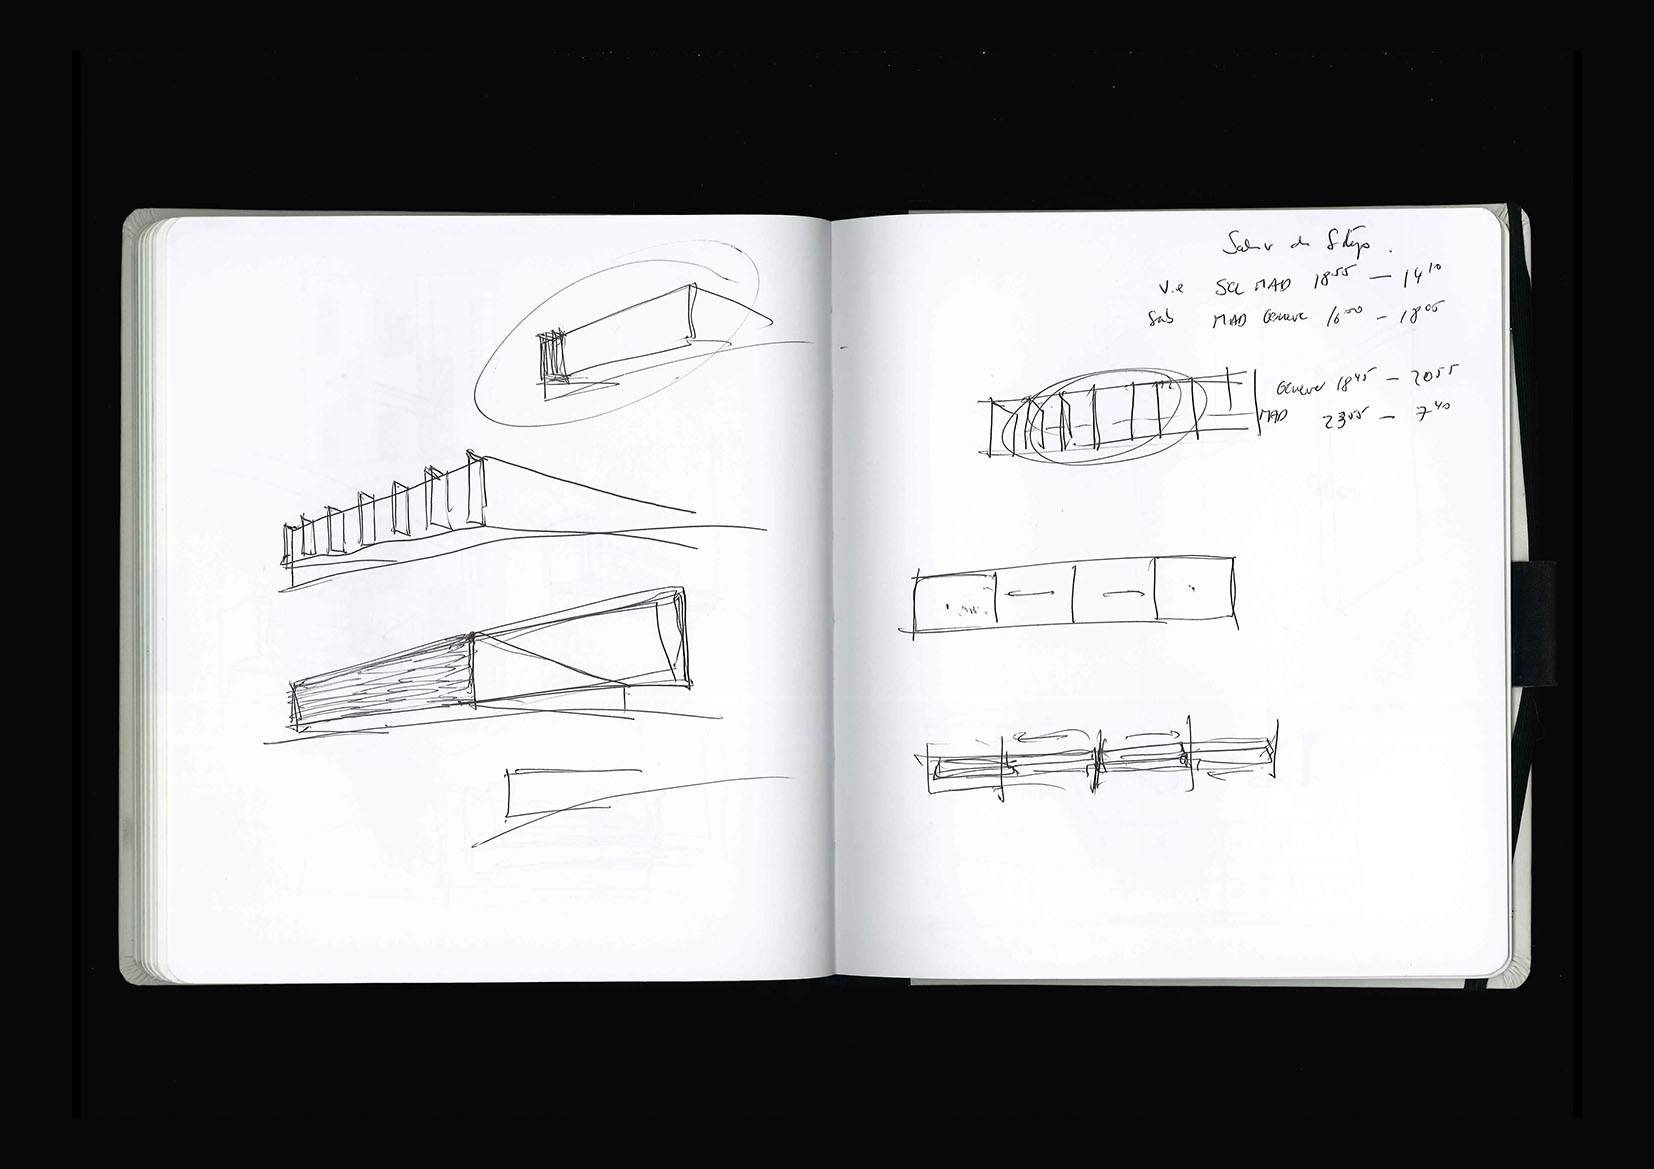 V.e SCL MAD 18⁵⁵ — 14¹⁰
Sab MAD Geneve 16⁰⁰ — 18⁰⁵
Geneve 18⁴⁵ — 20⁵⁵
MAD 23⁵⁵ — 7⁴⁰